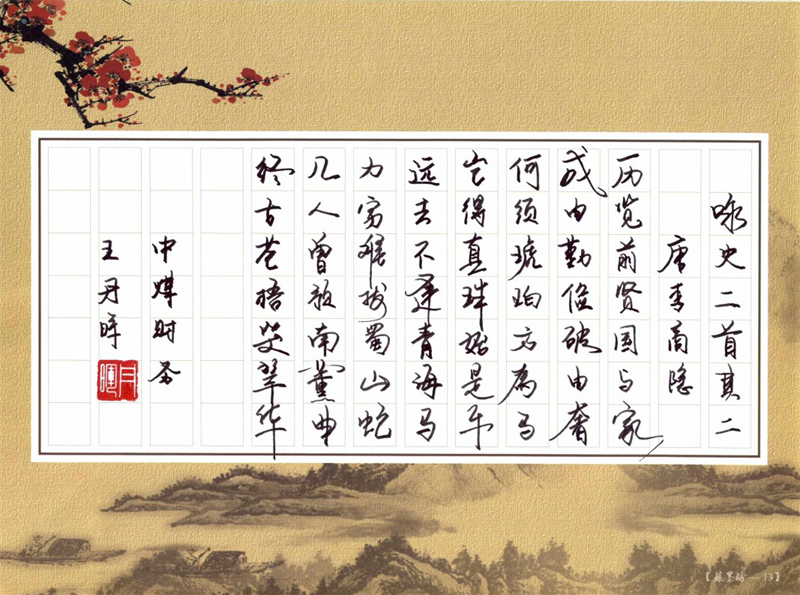 咏史二首其二
唐李商隐
历览前贤国与家
成由勤俭破由奢
何须琥珀方为马
岂得真珠始是车
远去不逢青海马
力穷难拔蜀山蛇
几人曾预南薰曲
终古苍梧哭翠华
中煤财务
王丹晖
丹晖